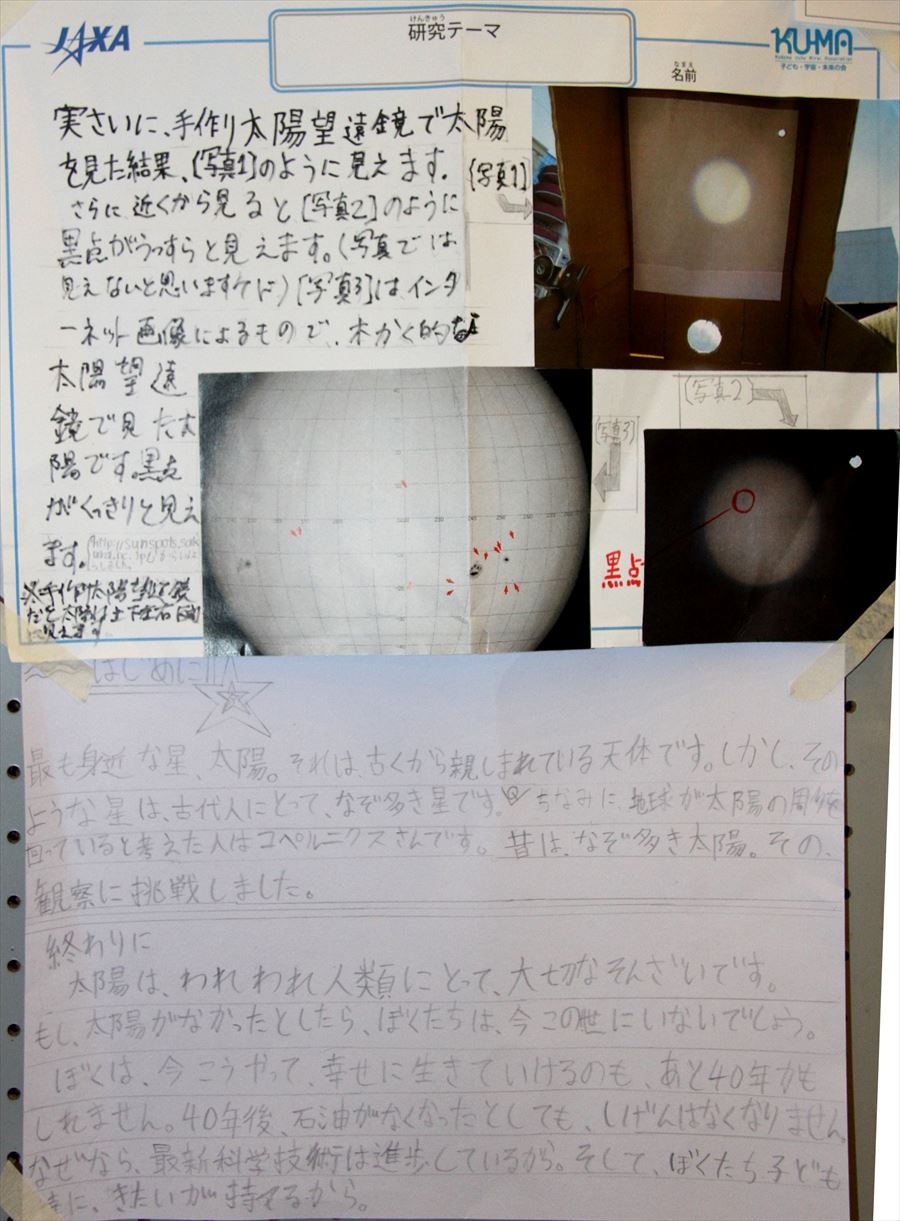 JAXA
けんきゅう
研究テーマ
KUMA
子ども・宇宙・未来の会
なまえ
名前
実さいに、手作り太陽望遠鏡で太陽
を見た結果、[写真1]のように見えます。
さらに、近くから見ると[写真2]のように
黒点がうっすらと見えます。(写真では
見えないと思いますけど)[写真3]は、インタ
ーネット画像によるもので、本かく的な
太陽望遠
鏡で見た太
陽です。黒点
がくっきりと見え
ます。
[写真1]
[写真2]
[写真3]
黒点
はじめに
最も身近な星、太陽。それは、古くから親しまれている天体です。しかし、その
ような星は、古代人にとって、なぞ多き星です。ちなみに、地球が太陽の周りを
回っていると考えた人はコペルニクスさんです。昔は、なぞ多き太陽。その、
観察に挑戦しました。
終わりに
太陽は、われわれ人類にとって、大切なそんざいです。
もし、太陽がなかったとしたら、ぼくたちは、今この世にいないでしょう。
ぼくは、今こうやって、幸せに生きていけるのも、あと40年かも
しれません。40年後、石油がなくなったとしても、しげんはなくなりません。
なぜなら、最新科学技術は進歩しているから。そして、ぼくたち子ども
達に、きたいが持てるから。